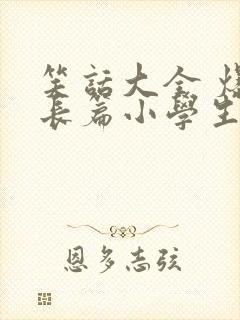 笑話大全 爆
長篇小學生
恩多志弦